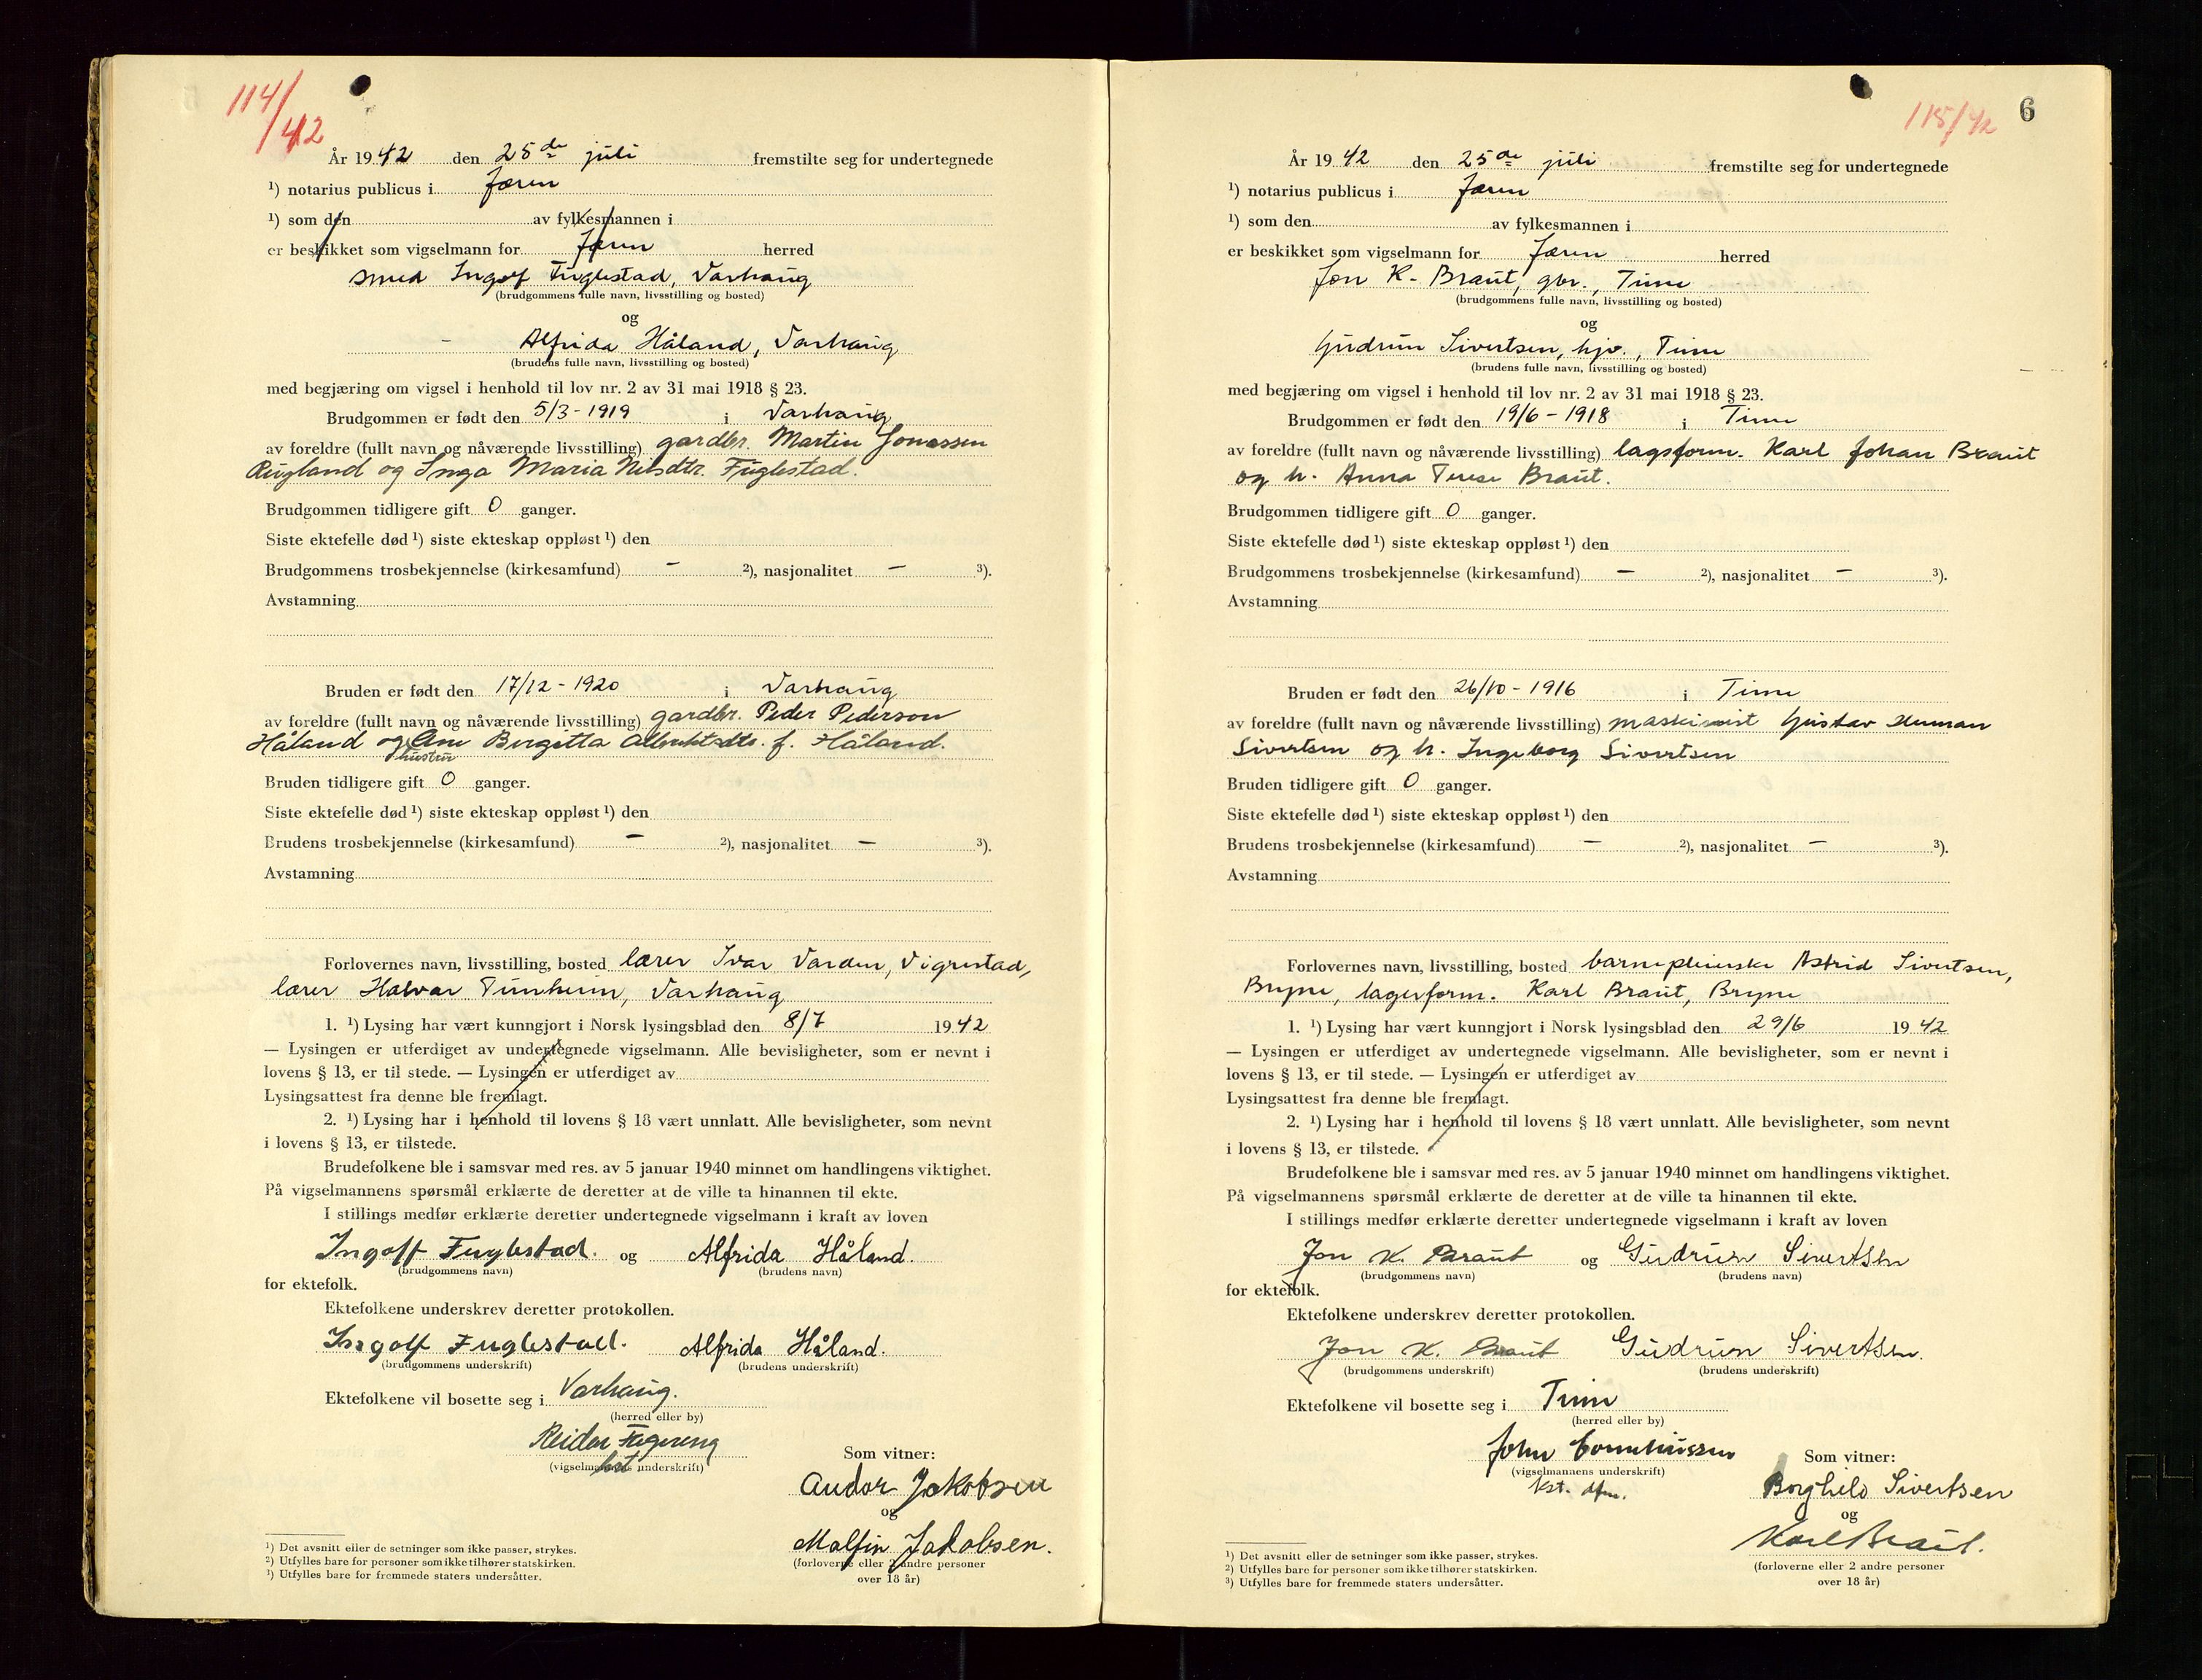 114/42
År 1942 den 25de juli fremstilte seg for undertegnede
¹) notarius publicus i Jæren
¹) som den av fylkesmannen i
er beskikket som vigselmann for Jæren herred
smed Ingolf Fuglestad, Varhaug
(brudgommens fulle navn, livsstilling og bosted)
og
- Alfrida Håland, Varhaug
(brudens fulle navn, livsstilling og bosted)
med begjæring om vigsel i henhold til lov nr. 2 av 31 mai 1918 § 23.
Brudgommen er født den 5/3 - 1919 i Varhaug
av foreldre (fullt navn og nåværende livsstilling) gardbr. Martin Jonassen
Rugland og Inga Maria Nilsdtr. Fuglestad.
Brudgommen tidligere gift 0 ganger.
Siste ektefelle død ¹) siste ekteskap oppløst ¹) den
Brudgommens trosbekjennelse (kirkesamfund) — ²), nasjonalitet — ³).
Avstamning
Bruden er født den 17/12 - 1920 i Varhaug
av foreldre (fullt navn og nåværende livsstilling) gardbr. Peder Pederson
Håland og hustru Ane Bergitta Albrektsdtr. f. Håland.
Bruden tidligere gift 0 ganger.
Siste ektefelle død ¹) siste ekteskap oppløst ¹) den
Brudens trosbekjennelse (kirkesamfund) — ²), nasjonalitet — ³).
Avstamning
Forlovernes navn, livsstilling, bosted lærer Ivar Varden, Vigrestad,
lærer Halvar Tunheim, Varhaug
1. ¹) Lysing har vært kunngjort i Norsk lysingsblad den 8/7 1942
— Lysingen er utferdiget av undertegnede vigselmann. Alle bevisligheter, som er nevnt i
lovens § 13, er til stede. — Lysingen er utferdiget av
Lysingsattest fra denne ble fremlagt.
2. ¹) Lysing har i henhold til lovens § 18 vært unnlatt. Alle bevisligheter, som nevnt
i lovens § 13, er tilstede.
Brudefolkene ble i samsvar med res. av 5 januar 1940 minnet om handlingens viktighet.
På vigselmannens spørsmål erklærte de deretter at de ville ta hinannen til ekte.
I stillings medfør erklærte deretter undertegnede vigselmann i kraft av loven
Ingolf Fuglestad. og Alfrida Håland.
(brudgommens navn) (brudens navn)
for ektefolk.
Ektefolkene underskrev deretter protokollen.
Ingolf Fuglestad. Alfrida Håland.
(brudgommens underskrift) (brudens underskrift)
Ektefolkene vil bosette seg i Varhaug.
(herred eller by)
Reidar Fagereng
(vigselmannens underskrift)
Som vitner:
Andor Jakobsen
og
Malfin Jakobsen.
(forloverne eller 2 andre personer
over 18 år)
¹) Det avsnitt eller de setninger som ikke passer, strykes.
²) Utfylles bare for personer som ikke tilhører statskirken.
³) Utfylles bare for fremmede staters undersåtter.
115/42 6
År 1942 den 25de juli fremstilte seg for undertegnede
¹) notarius publicus i Jæren
¹) som den av fylkesmannen i
er beskikket som vigselmann for Jæren herred
Jon K. Braut, gbr., Time
(brudgommens fulle navn, livsstilling og bosted)
og
Gudrun Sivertsen, hjv., Time
(brudens fulle navn, livsstilling og bosted)
med begjæring om vigsel i henhold til lov nr. 2 av 31 mai 1918 § 23.
Brudgommen er født den 19/6 - 1918 i Time
av foreldre (fullt navn og nåværende livsstilling) lagsform. Karl Johan Braut
og h. Anna Terese Braut.
Brudgommen tidligere gift 0 ganger.
Siste ektefelle død ¹) siste ekteskap oppløst ¹) den
Brudgommens trosbekjennelse (kirkesamfund) — ²), nasjonalitet — ³).
Avstamning
Bruden er født den 26/10 - 1916 i Time
av foreldre (fullt navn og nåværende livsstilling) maskinist Gustav Herman
Sivertsen og h. Ingeborg Sivertsen
Bruden tidligere gift 0 ganger.
Siste ektefelle død ¹) siste ekteskap oppløst ¹) den
Brudens trosbekjennelse (kirkesamfund) — ²), nasjonalitet — ³).
Avstamning
Forlovernes navn, livsstilling, bosted barnepleierske Astrid Sivertsen,
Bryne, lagerform. Karl Braut, Bryne
1. ¹) Lysing har vært kunngjort i Norsk lysingsblad den 29/6 1942
— Lysingen er utferdiget av undertegnede vigselmann. Alle bevisligheter, som er nevnt i
lovens § 13, er til stede. — Lysingen er utferdiget av
Lysingsattest fra denne ble fremlagt.
2. ¹) Lysing har i henhold til lovens § 18 vært unnlatt. Alle bevisligheter, som nevnt
i lovens § 13, er tilstede.
Brudefolkene ble i samsvar med res. av 5 januar 1940 minnet om handlingens viktighet.
På vigselmannens spørsmål erklærte de deretter at de ville ta hinannen til ekte.
I stillings medfør erklærte deretter undertegnede vigselmann i kraft av loven
Jon K. Braut og Gudrun Sivertsen
(brudgommens navn) (brudens navn)
for ektefolk.
Ektefolkene underskrev deretter protokollen.
Jon K. Braut Gudrun Sivertsen.
(brudgommens underskrift) (brudens underskrift)
Ektefolkene vil bosette seg i Time
(herred eller by)
John Corneliussen
(vigselmannens underskrift)
kst. dfm.
Som vitner:
Borghild Sivertsen
og
Karl Braut.
(forloverne eller 2 andre personer
over 18 år)
¹) Det avsnitt eller de setninger som ikke passer, strykes.
²) Utfylles bare for personer som ikke tilhører statskirken.
³) Utfylles bare for fremmede staters undersåtter.